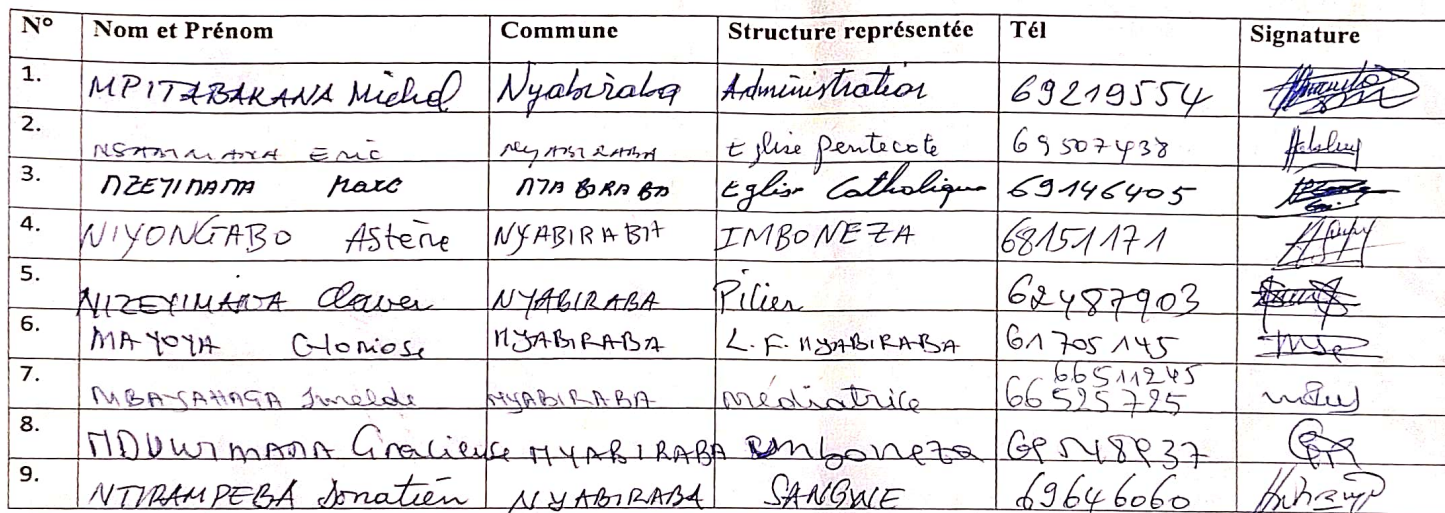 N° Nom et Prénom Commune Structure représentée Tél Signature
1. MPITABAKANA Michel Nyabiraba Administration 69219554
2. NSAMMAYA Eric NYABIRABA Eglise pentecote 69507438
3. NZEYIMANA Marc NYABIRABA Eglise Catholique 69146405
4. NIYONGABO Astère NYABIRABA IMBONEZA 68151171
5. NIZEYIMANA Claver NYABIRABA Pilier 62487903
6. MAYOYA Gloriose NYABIRABA L.F. NYABIRABA 61705145
66511245
7. MBAYAHAGA Imelde NYABIRABA médiatrice 66525725
8. NDUWIMANA Gracieuse NYABIRABA Imboneza
9. NTIRAMPEBA Donatien NYABIRABA SANGWE 69646060